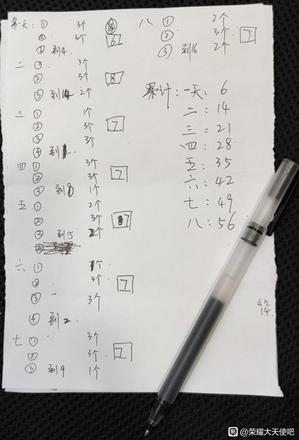 第一天: ① 3个
② 3个 6
③ 到4
二 ① 3个
② 3个 8
③ 到14 2个
三 ① 1个
② 3个 7
③ 3个
④ 到1
四 ① 3个
② 3个 7
③ 到8 1个
五 ① 2个
② 3个 7
③ 到15 2个
六 ① 1个
② 3个 7
③ 3个
④ 到2
七 ① 3个
② 3个 7
③ 到9 1个
八 ① 2个
② 3个 7
③ 到16 2个
累计: 一天: 6
二: 14
三: 21
四: 28
五: 35
六: 42
七: 49
八: 56
42
14
@荣耀大天使吧